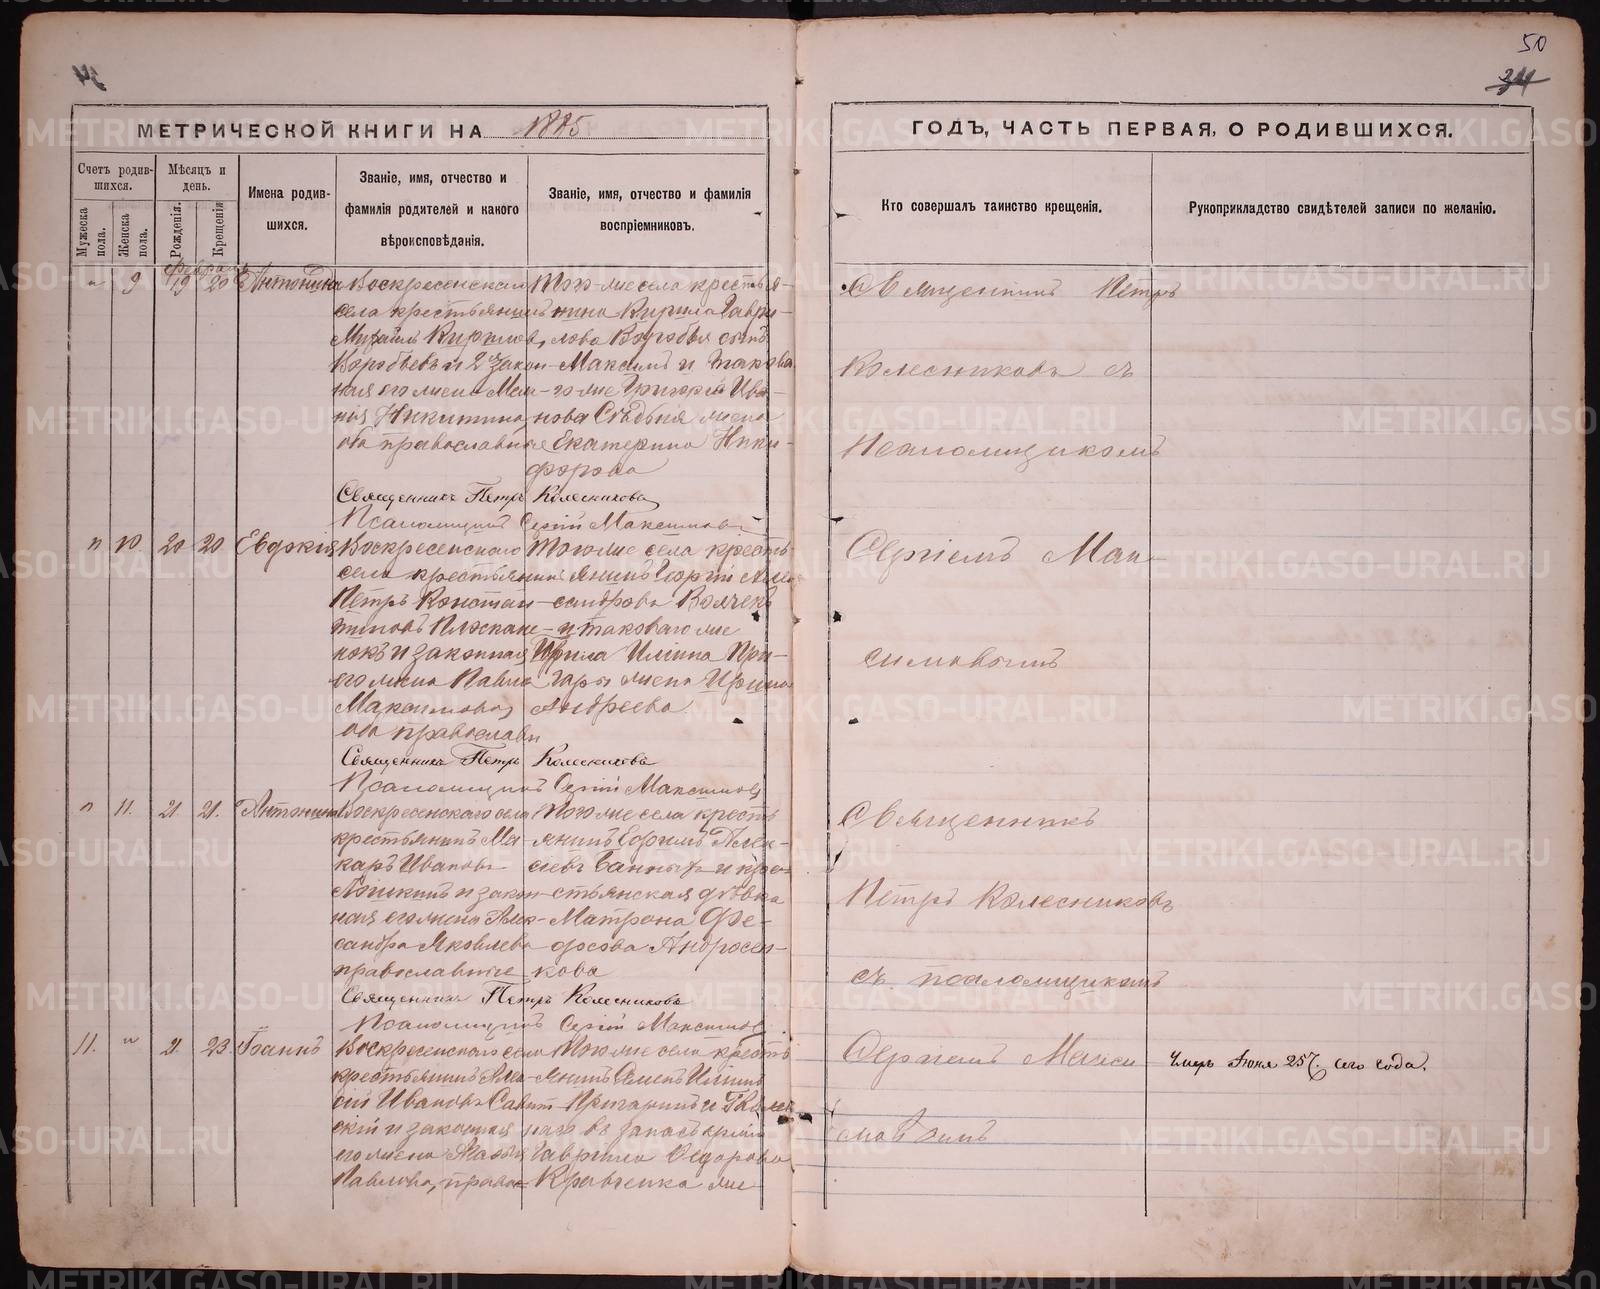 50
34
МЕТРИЧЕСКОЙ КНИГИ НА 1885
ГОДЪ, ЧАСТЬ ПЕРВАЯ, О РОДИВШИХСЯ.
Счетъ родив-
шихся.
Мужеска пола.
Женска пола.
Мѣсяцъ и
день.
Рожденія.
Крещенія
Имена родив-
шихся.
Званіе, имя, отчество и
фамилія родителей и какого
вѣроисповѣданія.
Званіе, имя, отчество и фамилія
воспріемниковъ.
Кто совершалъ таинство крещенія.
Рукоприкладство свидѣтелей записи по желанію.
Февраль
9 19 20 Антонина
Воскресенскаго
села крестьянинъ
Михаилъ Кирилов
Воробьевъ и 2 закон-
ная его жена Мела-
нія Никитина
оба православные
Того-же села крестья-
нина Кирила Гаври-
лова Воробья сынъ
Максимъ и такова
го-же Григорія Ива-
нова жена
Екатерина Ники-
форова
Священникъ Петръ Колесниковъ
Псаломщикъ Сергій Максимовъ
Священникъ Петръ
Колесниковъ съ
Псаломщикомъ
Сергіемъ Мак-
симовымъ
10 20 20 Евдокія
Воскресенскаго
села крестьянинъ
Петръ Констан-
тиновъ
и законная
его жена Павла
Максимова,
оба православн
Тогоже села кресть-
янинъ Георгій Алек-
сандровъ
и таковаго же
Ирила Ильина При-
гары жена Ирина
Андреева
Священникъ Петръ Колесниковъ
Псаломщикъ Сергій Максимовъ
11. 21. 21. Антонина
Воскресенскаго села
крестьянинъ Ма-
каръ Ивановъ
и закон-
ная его жена Алек-
сандра Яковлева
православные
Тогоже села кресть
янинъ Ефимъ Алек-
сѣевъ и кре-
стьянская дѣвка
Матрона Фе-
досова Андросен-
кова
Священникъ Петръ Колесниковъ
Псаломщикъ Сергій Максимовъ
Священникъ
Петръ Колесниковъ
съ псаломщикомъ
Сергіемъ Макси
мовымъ
11. 21. 23. Іоаннъ
Воскресенскаго села
крестьянинъ Але-
сій Ивановъ Савит-
скій и законная
его жена
Павлова, право-
Тогоже села кресть
янинъ Семенъ Ильинъ
Пригаринъ и
въ запасъ армии
Гаврила Федорова
Кравченка же
Умеръ Іюня 25/. сего года.
METRIKI.GASO-URAL.RU